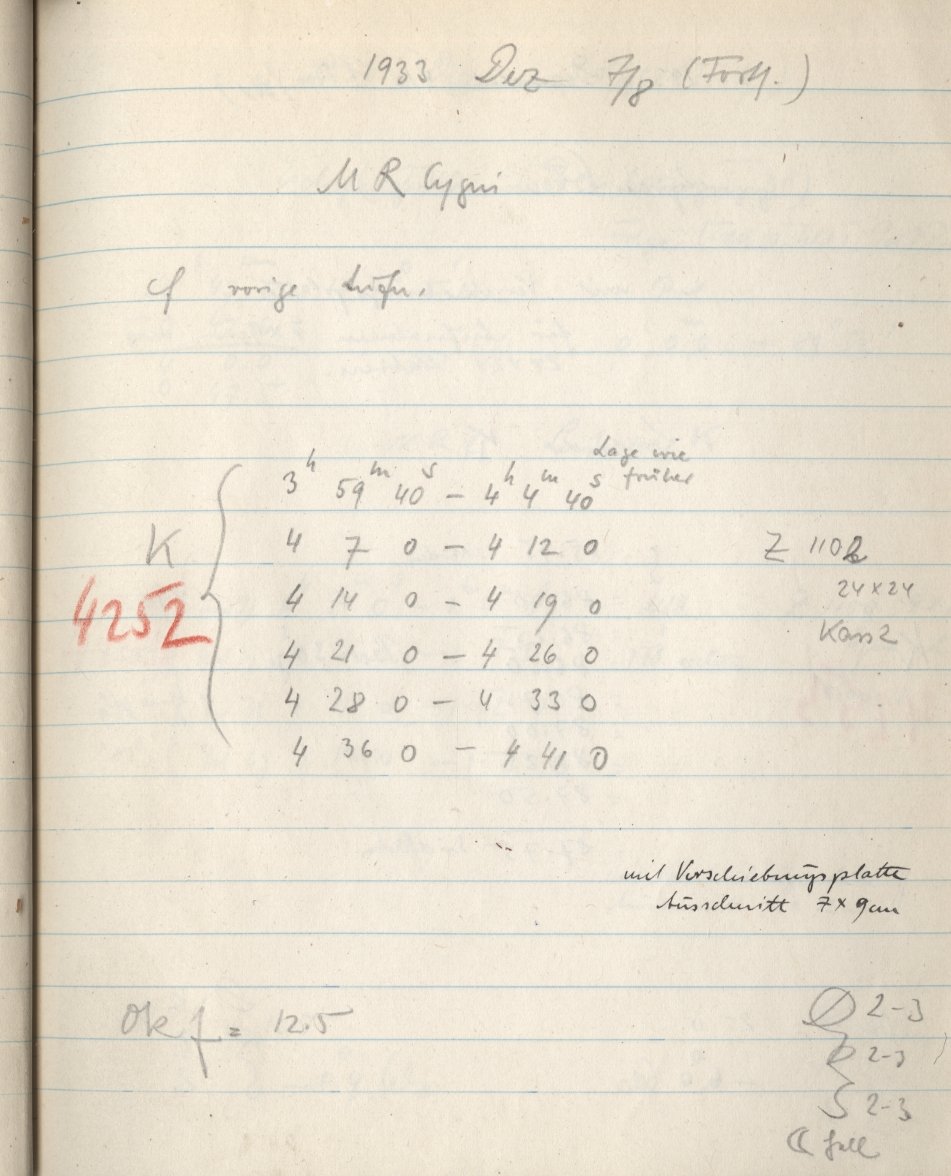 1933 Dez 7/8 (Forts.)
M R Cygni
cf vorige Aufn.
Lage wie
früher
3h 59m 40s – 4h 4m 40s
K
4 7 0 – 4 12 0
Z 110
4252
4 14 0 – 4 19 0
24x24
4 21 0 – 4 26 0
Kass 2
4 28 0 – 4 33 0
4 36 0 – 4 41 0
mit Verschiebungsplatte
Ausschnitt 7 x 9 cm
Ok f = 12.5
2-3
2-3
S 2-3
hell